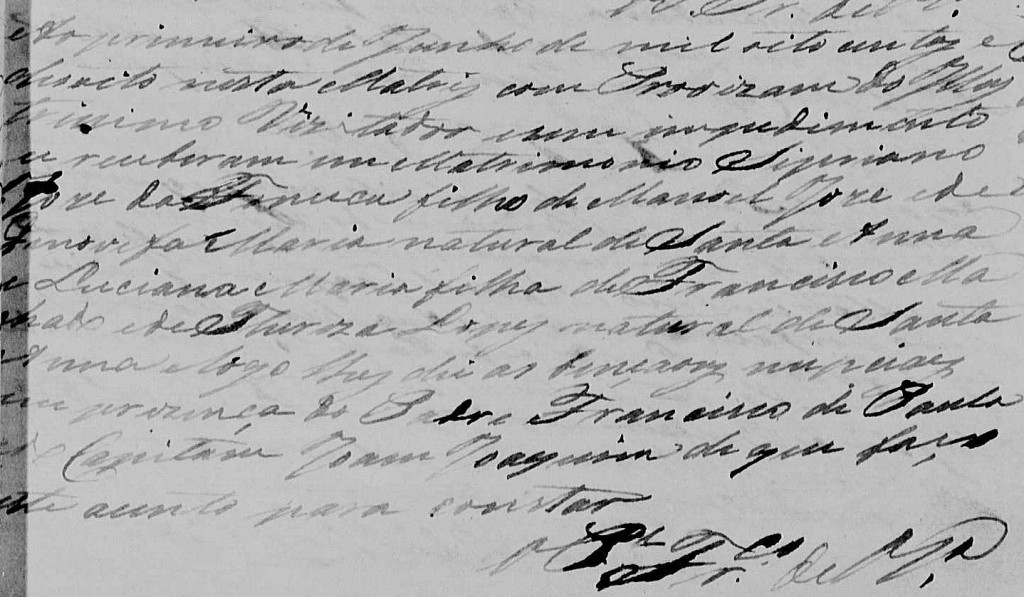 Ao primeiro de Junho de mil oito centos e
desoito nesta Matriz com Provizam do Illus
trisimo Vizitador e sem impedimento
se receberam em Matrimonio Sipriano
Joze da Fonceca filho de Manoel Joze e de
Genovefa Maria natural de Santa Anna
e Luciana Maria filha de Francisco Ma
chado e de Thereza Lopez natural de Santa
Anna e logo lhes dei as bençaoz nupciaez
em prezença do Padre Francisco de Paula
e do Capitam Joam Joaquim de que faço
este acento para constar